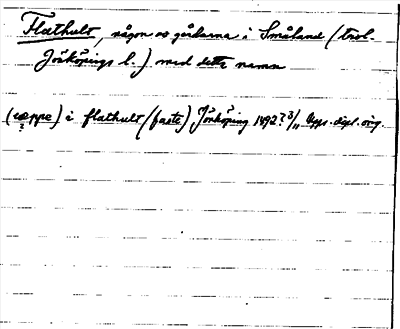 Flathult, någon av gårdarna i Småland (trol.
Jönköpings l.) med detta namn
(æppe) i flathult (faste) Jönköping 1492? 3/11 Upps. dipl. orig.
?